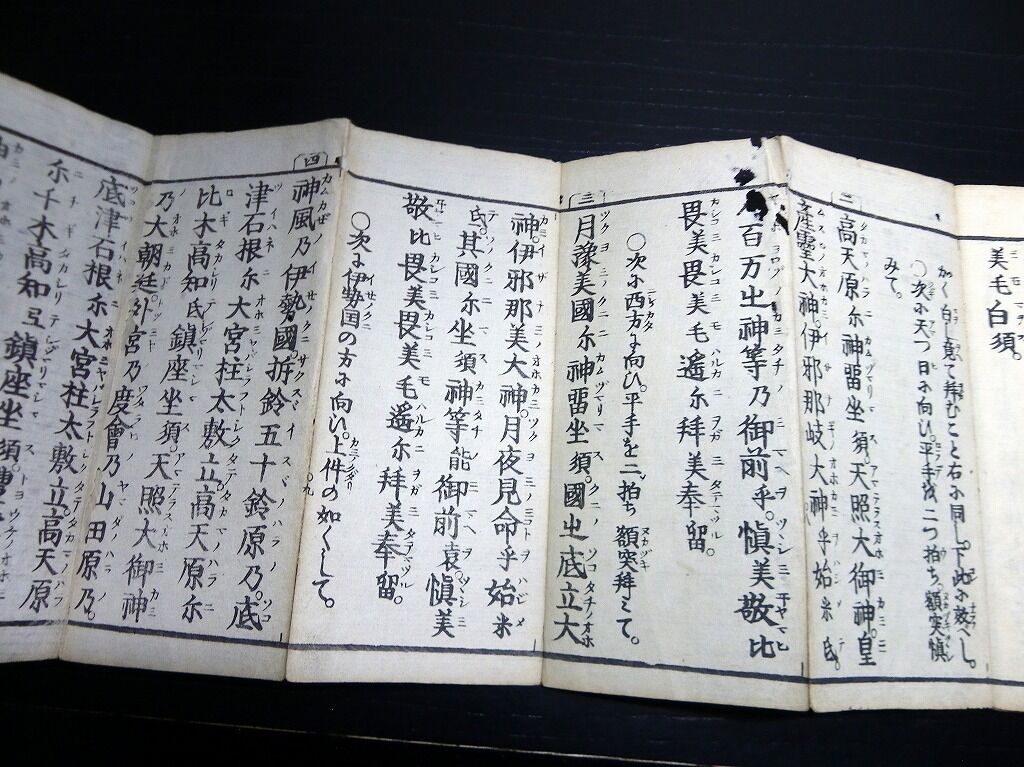 美毛白須。
かく白し竟て拝むこと右に同し。下此に效へし。
○次に天つ日に向ひ。平手を二つ拍ち。額突慎
みて。
二
高天原尓神留坐須。天照大御神。皇
産霊大神。伊邪那岐大神乎始米氐。
百万出神等乃御前乎。慎美敬比
畏美畏美毛遥尓拝美奉留。
○次に西方に向ひ。平手を二拍ち額突拜みて。
三
月豫美國尓神留坐須。國出底立大
神。伊邪那美大神。月夜見命乎始米
氐。其國尓坐須神等能御前袁。慎美
敬比畏美畏美毛遥尓拝美奉留。
○次に伊勢国の方に向ひ。上件の如くして。
四
神風乃伊勢國。拆鈴五十鈴原乃。底
津石根尓大宮柱太敷立。高天原尓
比木高知氐鎮座坐須。天照大御神
乃大朝廷。外宮乃度會乃山田原乃。
底津石根尓大宮柱太敷立。高天原
尓千木高知弖鎮座坐須。豊